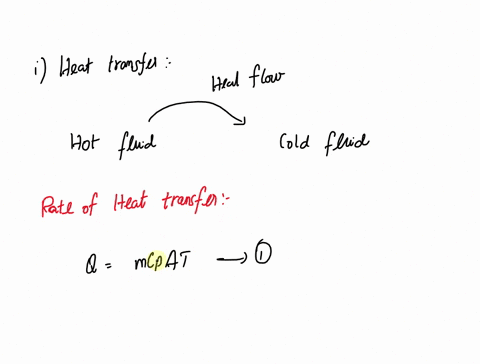 i) Heat transfer :-
Heat flow
Hot fluid Cold fluid
Rate of Heat transfer :-
Q = mCpΔT → ①